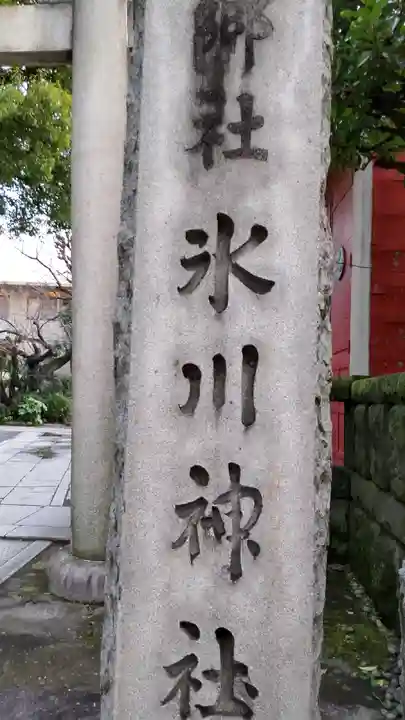 郷社氷川神社